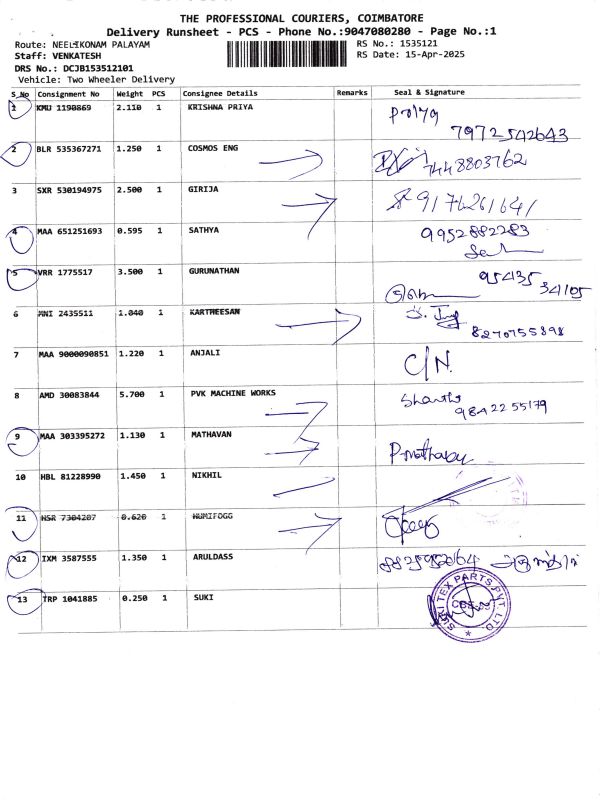 THE PROFESSIONAL COURIERS, COIMBATORE
Delivery Runsheet - PCS - Phone No.:9047080280 - Page No.:1
Route: NEELIKONAM PALAYAM RS No.: 1535121
Staff: VENKATESH RS Date: 15-Apr-2025
DRS No.: DCJB153512101
Vehicle: Two Wheeler Delivery
S_No Consignment No Weight PCS Consignee Details Remarks Seal & Signature
1 KMU 1190869 2.110 1 KRISHNA PRIYA
7972542643
2 BLR 535367271 1.250 1 COSMOS ENG 7448803762
3 SXR 530194975 2.500 1 GIRIJA 9176261641
4 MAA 651251693 0.595 1 SATHYA 9952882283
5 VRR 1775517 3.500 1 GURUNATHAN 95435
34105
6 MNI 2435511 1.040 1 KARTHEESAN
8270755898
7 MAA 9000090851 1.220 1 ANJALI C/N.
8 AMD 30083844 5.700 1 PVK MACHINE WORKS Shanthi
9842255179
9 MAA 303395272 1.130 1 MATHAVAN P.mathavan
10 HBL 81228990 1.450 1 NIKHIL
11 NSR 7304207 0.620 1 HUMIFOGG
12 IXM 3587555 1.350 1 ARULDASS
13 TRP 1041885 0.250 1 SUKI SUKI TEX PARTS PVT. LTD.